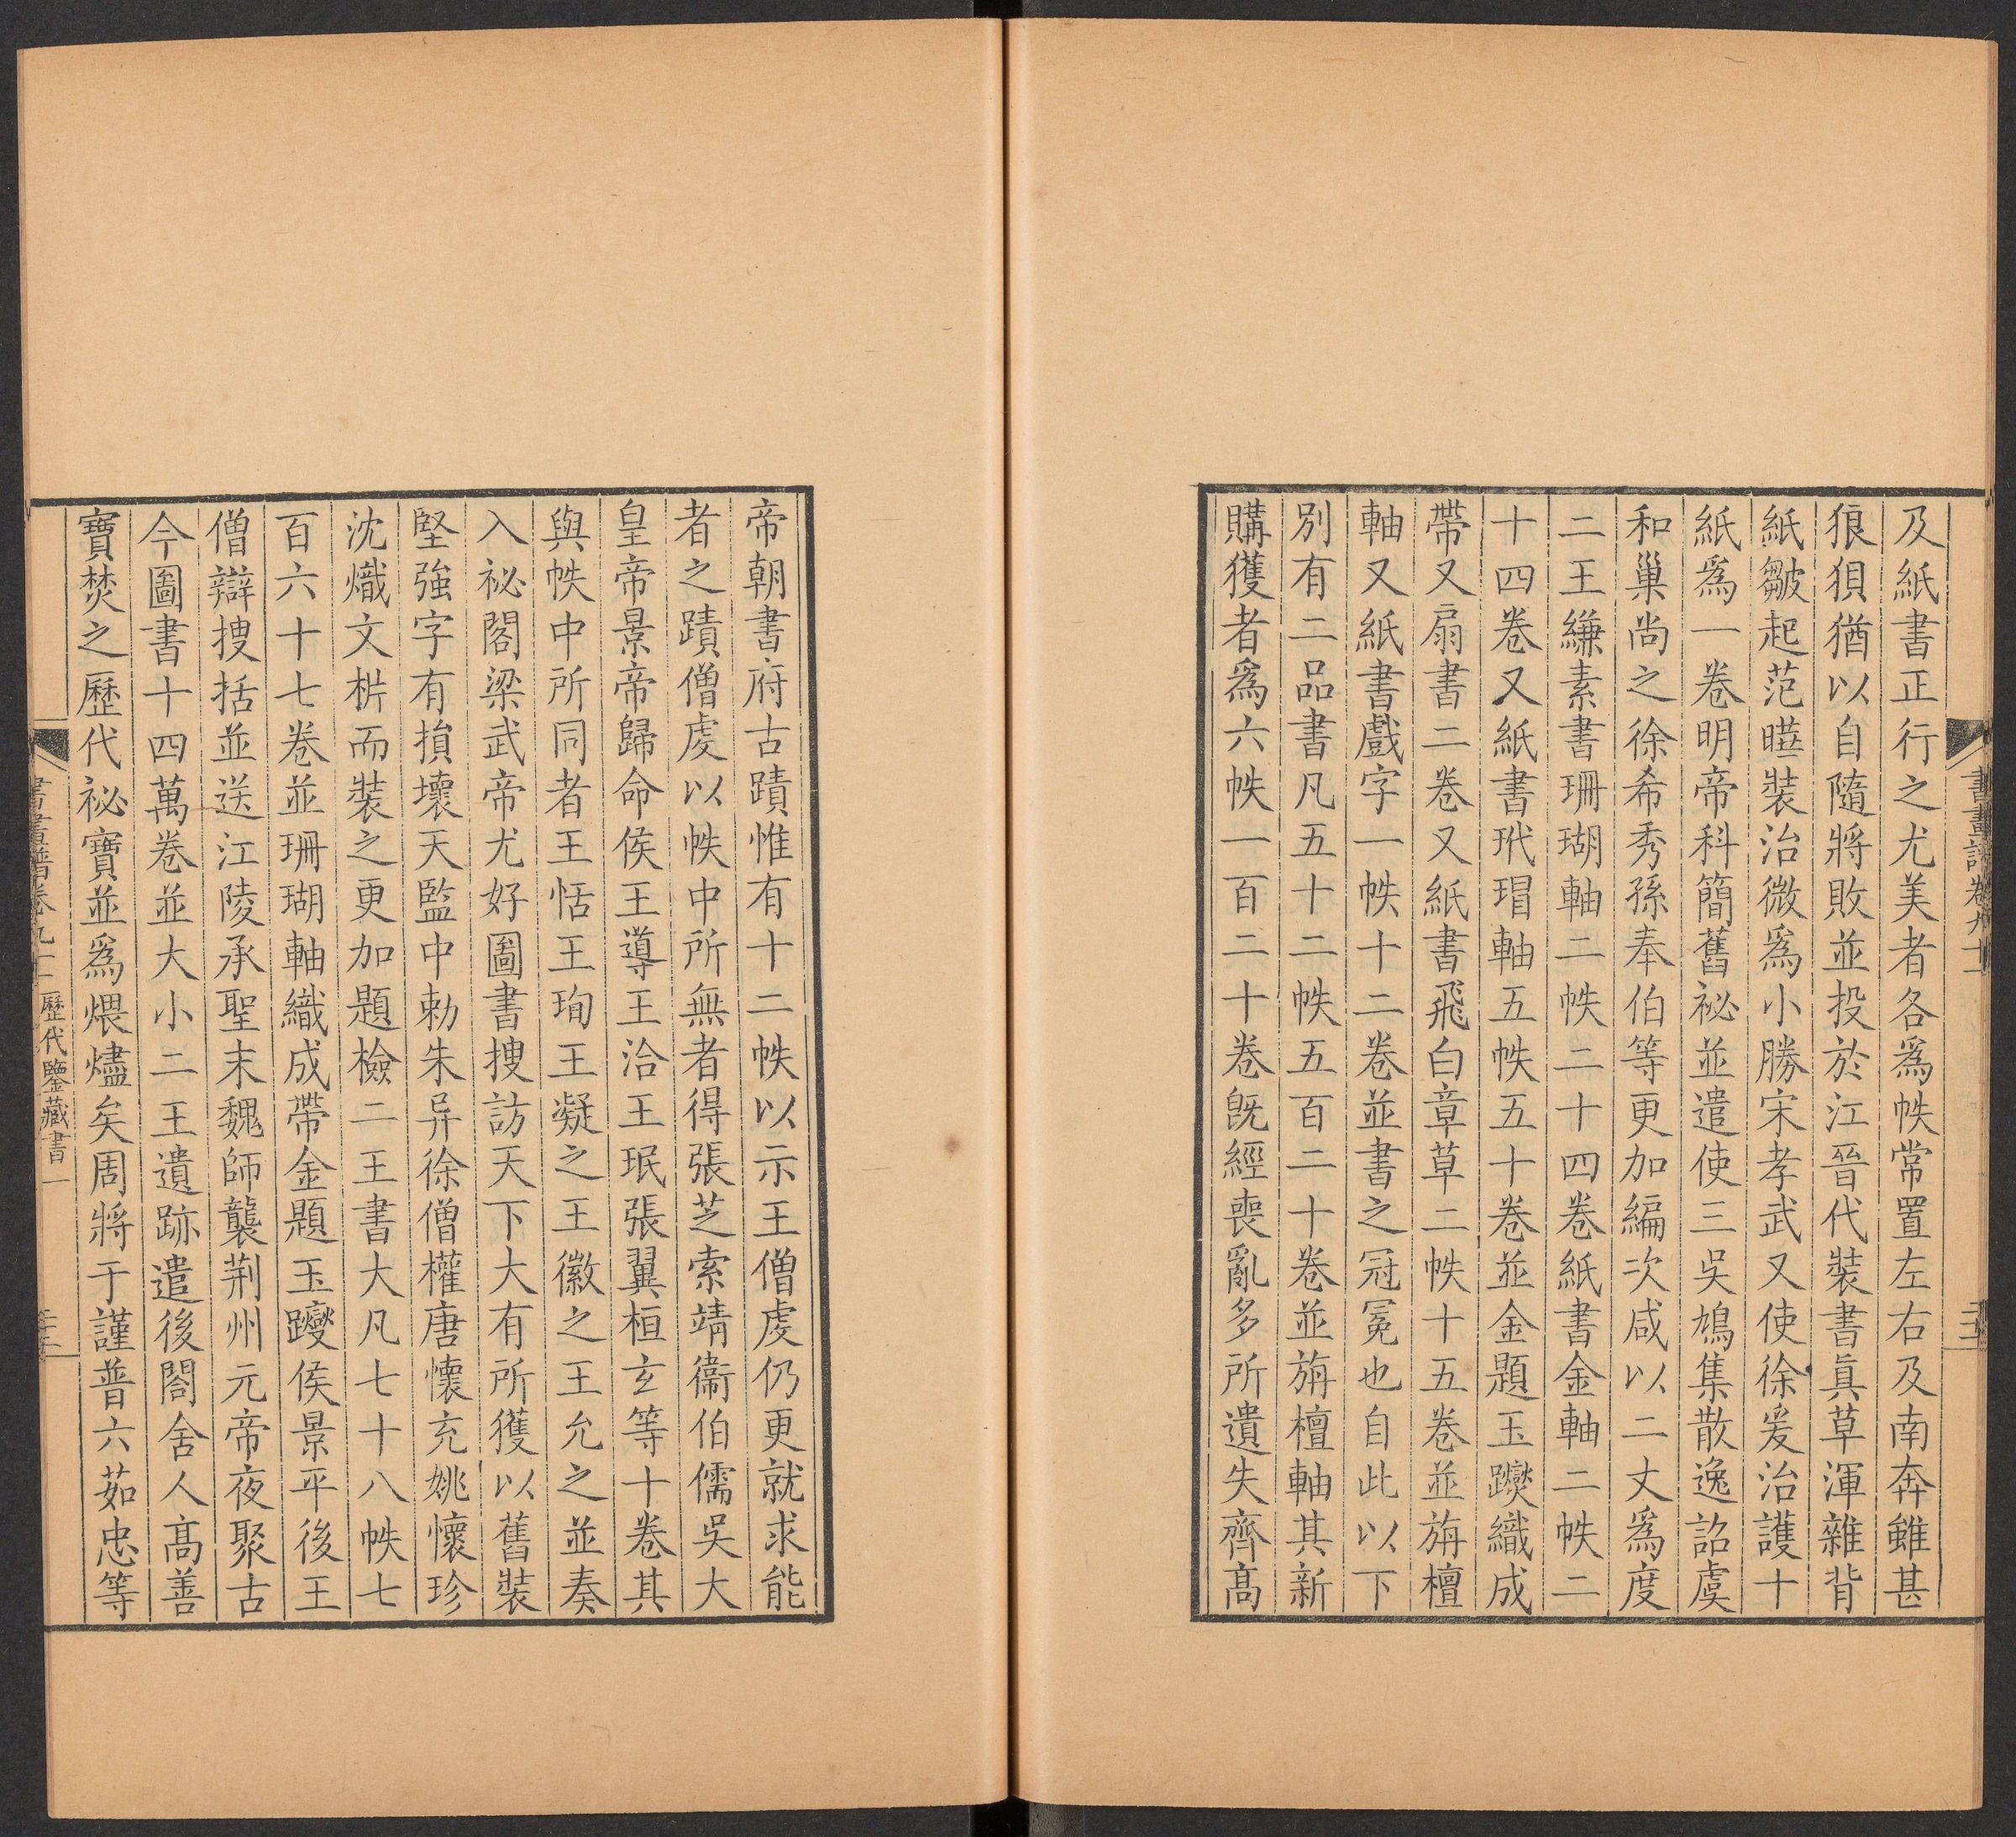 及紙書正行之尤美者各爲帙常置左右及南奔雖甚
狼狽猶以自隨將敗並投於江晉代裝書眞草渾雜背
紙皺起范曄裝治微爲小勝宋孝武又使徐爰治護十
紙爲一卷明帝科簡舊祕並遣使三吳鳩集散逸詔虞
和巢尚之徐希秀孫奉伯等更加編次咸以二丈爲度
二王縑素書珊瑚軸二帙二十四卷紙書金軸二帙二
十四卷又紙書玳瑁軸五帙五十卷並金題玉躞織成
帶又扇書二卷又紙書飛白章草二帙十五卷並旃檀
軸又紙書戲字一帙十二卷並書之冠冕也自此以下
別有二品書凡五十二帙五百二十卷並旃檀軸其新
購獲者爲六帙一百二十卷旣經喪亂多所遺失齊高
帝朝書府古蹟惟有十二帙以示王僧虔仍更就求能
者之蹟僧虔以帙中所無者得張芝索靖衞伯儒吳大
皇帝景帝歸命侯王導王洽王珉張翼桓玄等十卷其
與帙中所同者王恬王珣王凝之王徽之王允之並奏
入祕閣梁武帝尤好圖書搜訪天下大有所獲以舊裝
堅強字有損壞天監中勅朱异徐僧權唐懷充姚懷珍
沈熾文析而裝之更加題檢二王書大凡七十八帙七
百六十七卷並珊瑚軸織成帶金題玉躞侯景平後王
僧辯搜括並送江陵承聖末魏師襲荆州元帝夜聚古
今圖書十四萬卷並大小二王遺跡遣後閤舍人高善
寶焚之歷代祕寶並爲煨燼矣周將于謹普六茹忠等
書畫譜卷九十一 歷代鑒藏書一